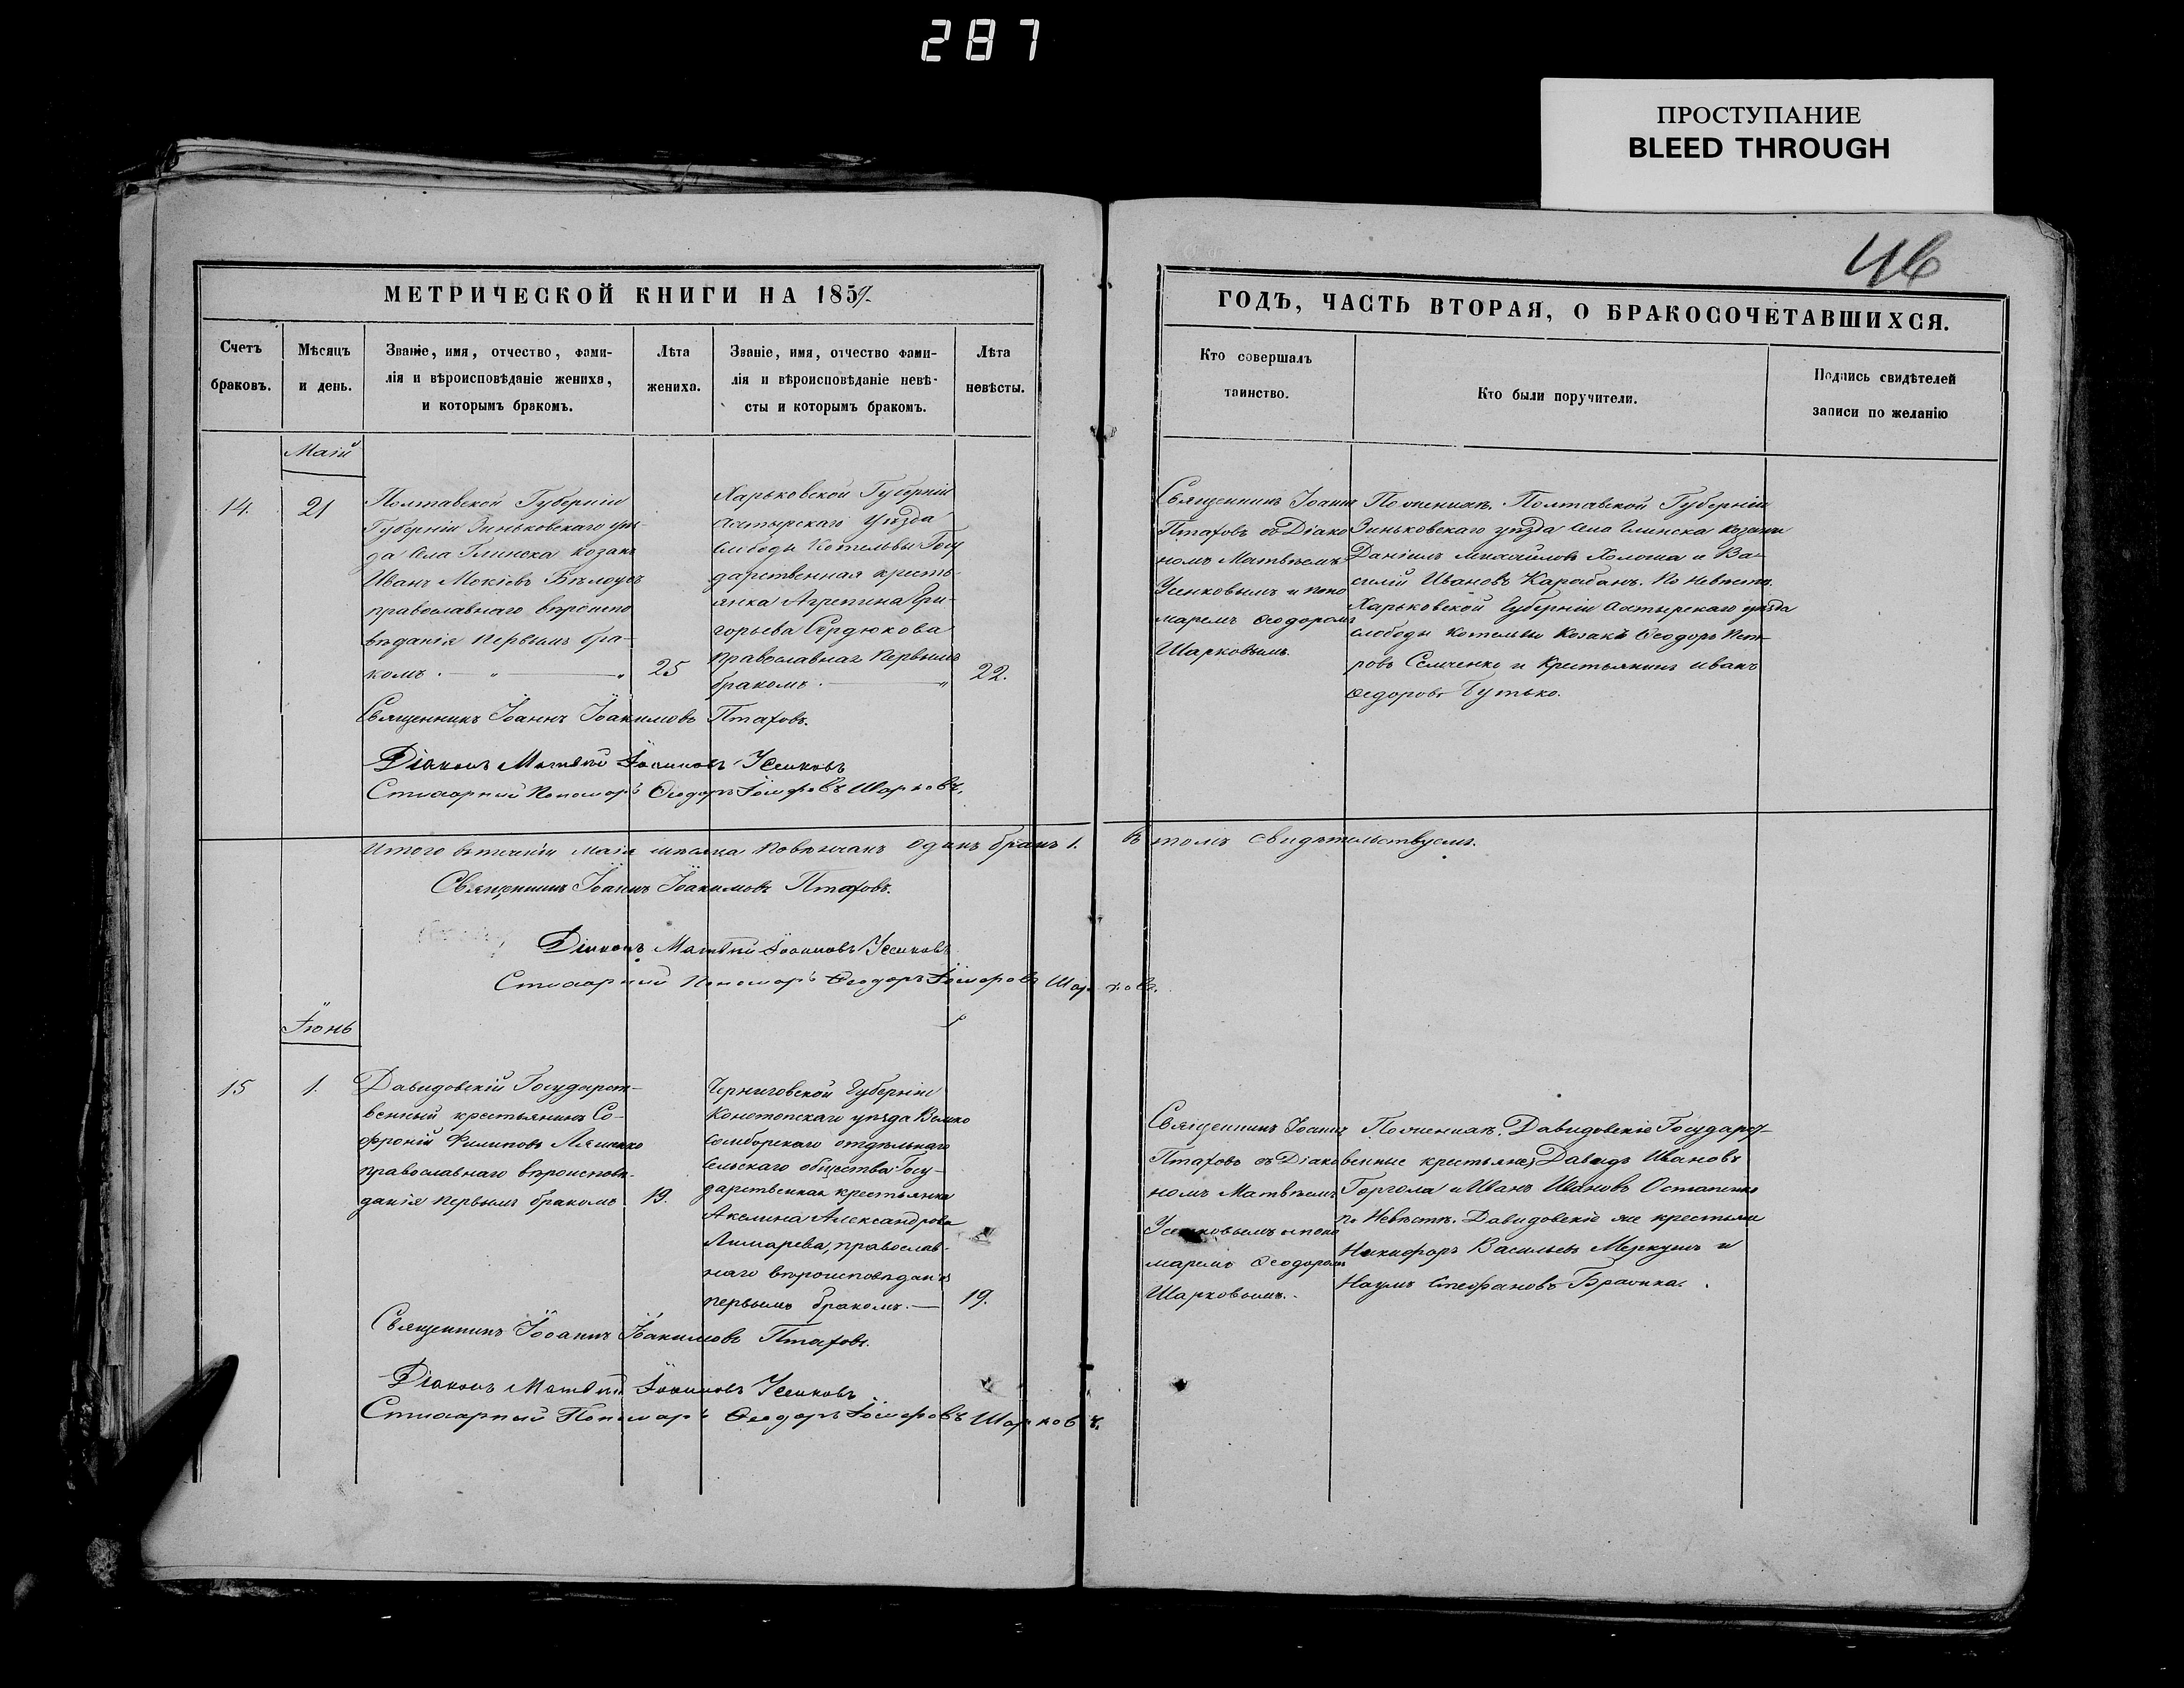 287
ПРОСТУПАНИЕ
BLEED THROUGH
46
МЕТРИЧЕСКОЙ КНИГИ НА 1859
ГОДЪ, ЧАСТЬ ВТОРАЯ, О БРАКОСОЧЕТАВШИХСЯ.
Счетъ
браковъ.
Мѣсяцъ
и день.
Званіе, имя, отчество, фами-
лія и вѣроисповѣданіе жениха,
и которымъ бракомъ.
Лѣта
жениха.
Званіе, имя, отчество фами-
лія и вѣроисповѣданіе невѣ-
сты и которымъ бракомъ.
Лѣта
невѣсты.
Кто совершалъ
таинство.
Кто были поручители.
Подпись свидѣтелей
записи по желанію
Маій
14.
21
Полтавской Губерніи
Губерніи Зиньковскаго уѣз-
да села Глинска козакъ
Иванъ Мокіевъ Бѣлоусъ
православнаго вѣроиспо
вѣданія первымъ бра-
комъ.
25
Харьковской Губерніи
Ахтырскаго Уѣзда
слободы Котельвы Госу
дарственная кресть-
янка Агрепина Гри-
горьева Сердюкова
православная первымъ
бракомъ.
22.
Священникъ Іоаннъ
Птаховъ съ Діако
номъ Матвѣемъ
Усиковымъ и поно
маремъ Ѳеодоромъ
Шарковымъ.
По женихѣ. Полтавской Губерніи
Зиньковскаго уѣзда села Глинска козаки
Даніилъ Михайловъ Холоша и Ва-
силій Ивановъ Карабанъ. По невѣстѣ.
Харьковской Губерніи Ахтырскаго уѣзда
слободы Котельвы Козакъ Ѳеодоръ Пет-
ровъ Семченко и Крестьянинъ Иванъ
Ѳедоровъ Бутько.
Священникъ Іоаннъ Іоакимовъ Птаховъ.
Діаконъ Матѳій Іоанновъ Усиковъ
Стихарный Пономарь Ѳеодоръ Іосифовъ Шарковъ.
Итого втеченіи Маія мѣсяца повѣнчанъ одинъ бракъ 1. Въ томъ свидѣтельствуемъ.
Священникъ Іоаннъ Іоакимовъ Птаховъ.
Діаконъ Матѳій Іоанновъ Усиковъ
Стихарный Пономарь Ѳеодоръ Іосифовъ Шарковъ.
Іюнь
15
1.
Давидовскій Государст-
венный крестьянинъ Со-
фроній Филиповъ Ляшенко
православнаго вѣроисповѣ-
данія первымъ бракомъ
19.
Черниговской Губерніи
Конотопскаго уѣзда Велико
самборскаго отдѣльнаго
сельскаго общества Госу-
дарственная крестьянка
Акелина Александрова
Лимарева, православ-
наго вѣроисповѣданія
первымъ бракомъ.
19.
Священникъ Іоаннъ
Птаховъ съ Діако
номъ Матвѣемъ
Усиковымъ и поно
маремъ Ѳеодоромъ
Шарковымъ.
По женихѣ. Давидовскіе Государст-
венные крестьяне, Давидъ Ивановъ
Горгола и Иванъ Ивановъ Остапенко
по Невѣстѣ. Давидовскіе же крестьяне
Никифоръ Васильевъ Меркушъ и
Наумъ Стефановъ
Священникъ Іоаннъ Іоакимовъ Птаховъ.
Діаконъ Матѳій Іоанновъ Усиковъ
Стихарный Пономарь Ѳеодоръ Іосифовъ Шарковъ.